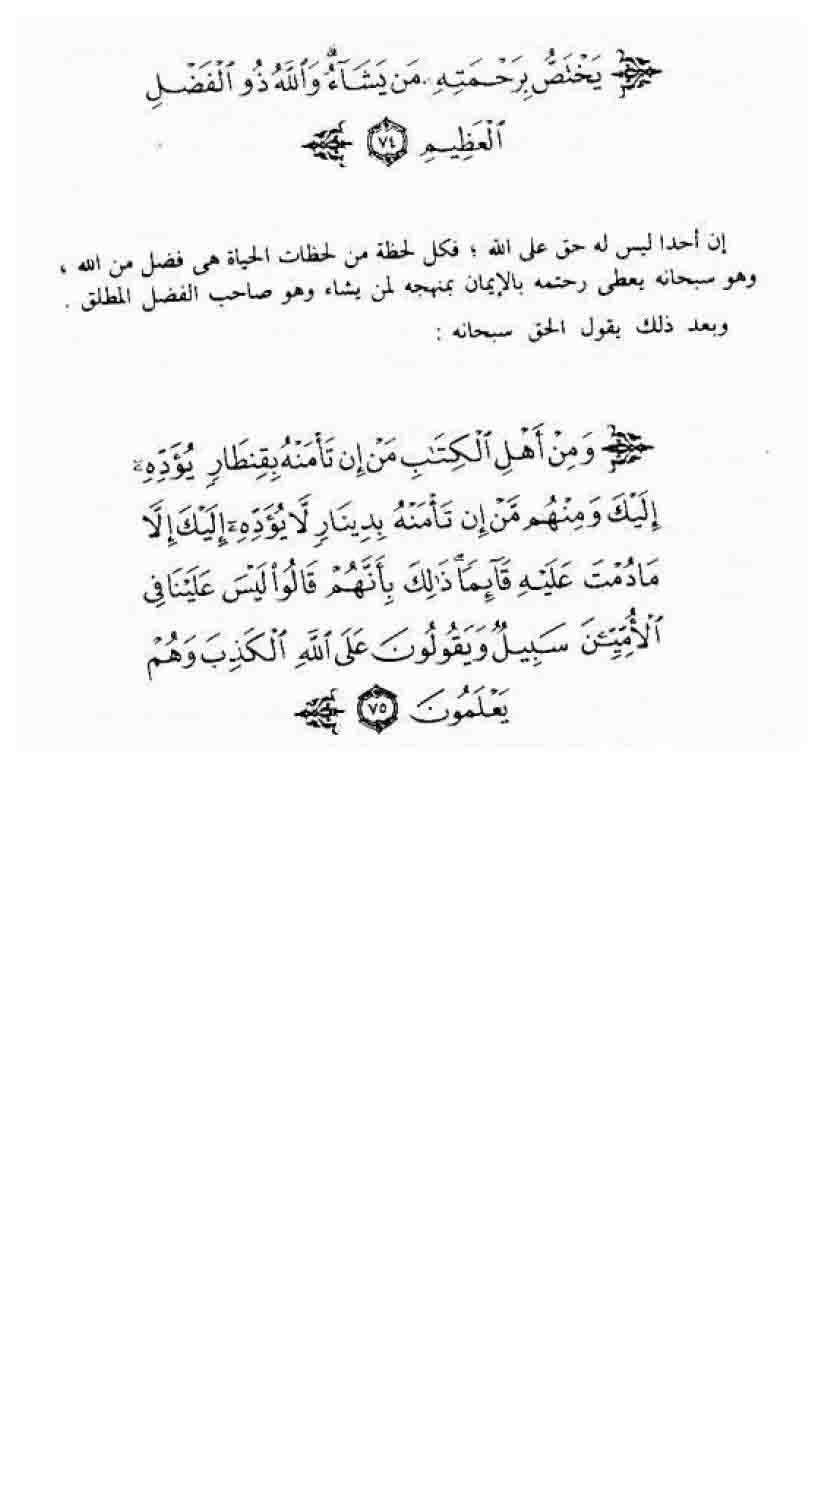 ﴿ يَخْتَصُّ بِرَحْمَتِهِۦ مَن يَشَآءُ ۗ وَٱللَّهُ ذُو ٱلْفَضْلِ
ٱلْعَظِيمِ ٧٤ ﴾
إن أحدا ليس له حق على الله ؛ فكل لحظة من لحظات الحياة هى فضل من الله ،
وهو سبحانه يعطى رحتمه بالإيمان بمنهجه لمن يشاء وهو صاحب الفضل المطلق .
وبعد ذلك يقول الحق سبحانه :
﴿ وَمِنْ أَهْلِ ٱلْكِتَٰبِ مَنْ إِن تَأْمَنْهُ بِقِنطَارٍ يُؤَدِّهِۦٓ
إِلَيْكَ وَمِنْهُم مَّنْ إِن تَأْمَنْهُ بِدِينَارٍ لَّا يُؤَدِّهِۦٓ إِلَيْكَ إِلَّا
مَادُمْتَ عَلَيْهِ قَآئِمًا ۗ ذَٰلِكَ بِأَنَّهُمْ قَالُوا۟ لَيْسَ عَلَيْنَا فِى
ٱلْأُمِّيِّـۧنَ سَبِيلٌ وَيَقُولُونَ عَلَى ٱللَّهِ ٱلْكَذِبَ وَهُمْ
يَعْلَمُونَ ٧٥ ﴾